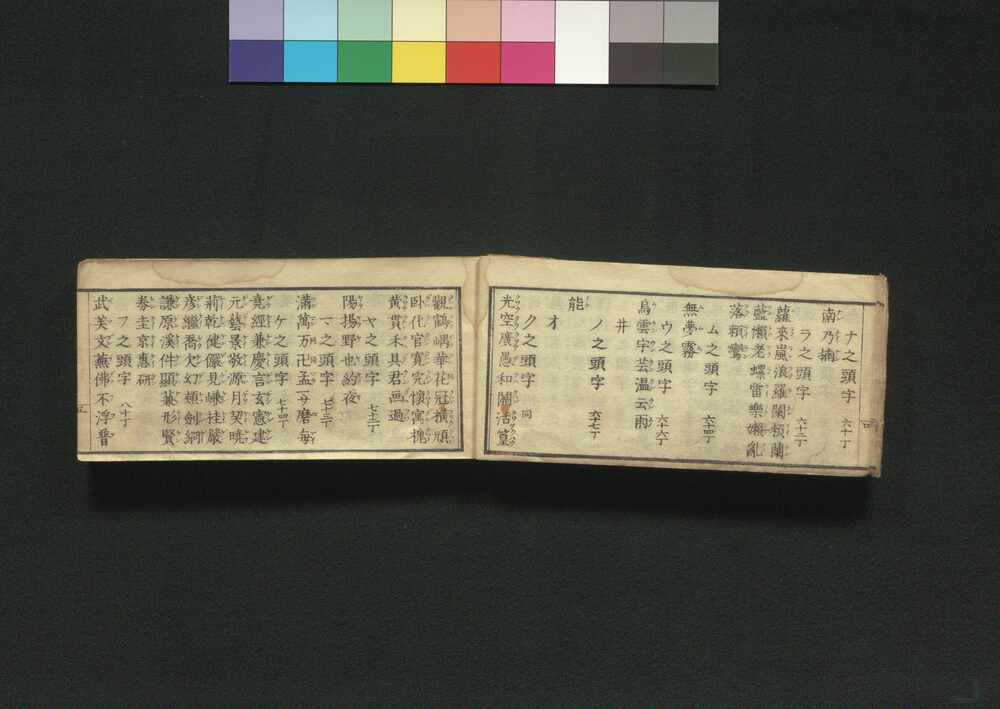 ナ之頭字 六十丁
南乃楠
ラ之頭字 六十二丁
蘿來嵐浪羅闌頼蘭
藍瀬老螺雷樂嬾亂
落頼鸞
ム之頭字 六十四丁
無夢霧
ウ之頭字 六十六丁
烏雲宇芸温云雨
井
ノ之頭字 六十七丁
能
オ
ク之頭字 同
光空廣愚和闊活篁
觀鶴嵎華花冠横頑
臥化官寛完懐寓槐
黄貫禾具君画過
ヤ之頭字 七十二丁
陽揚野也約夜
マ之頭字 七十三丁
満萬万卍孟磨毎
ケ之頭字 七十四丁
堯經兼慶言玄憲建
元藝景敬源月契暁
荊乾健儼見嵊桂嚴
彦繼喬欠幻頬劍綱
謙原溪件顯蕙形賢
巻圭京惠研
フ之頭字 八十丁
武芙文蕪佛不浮普